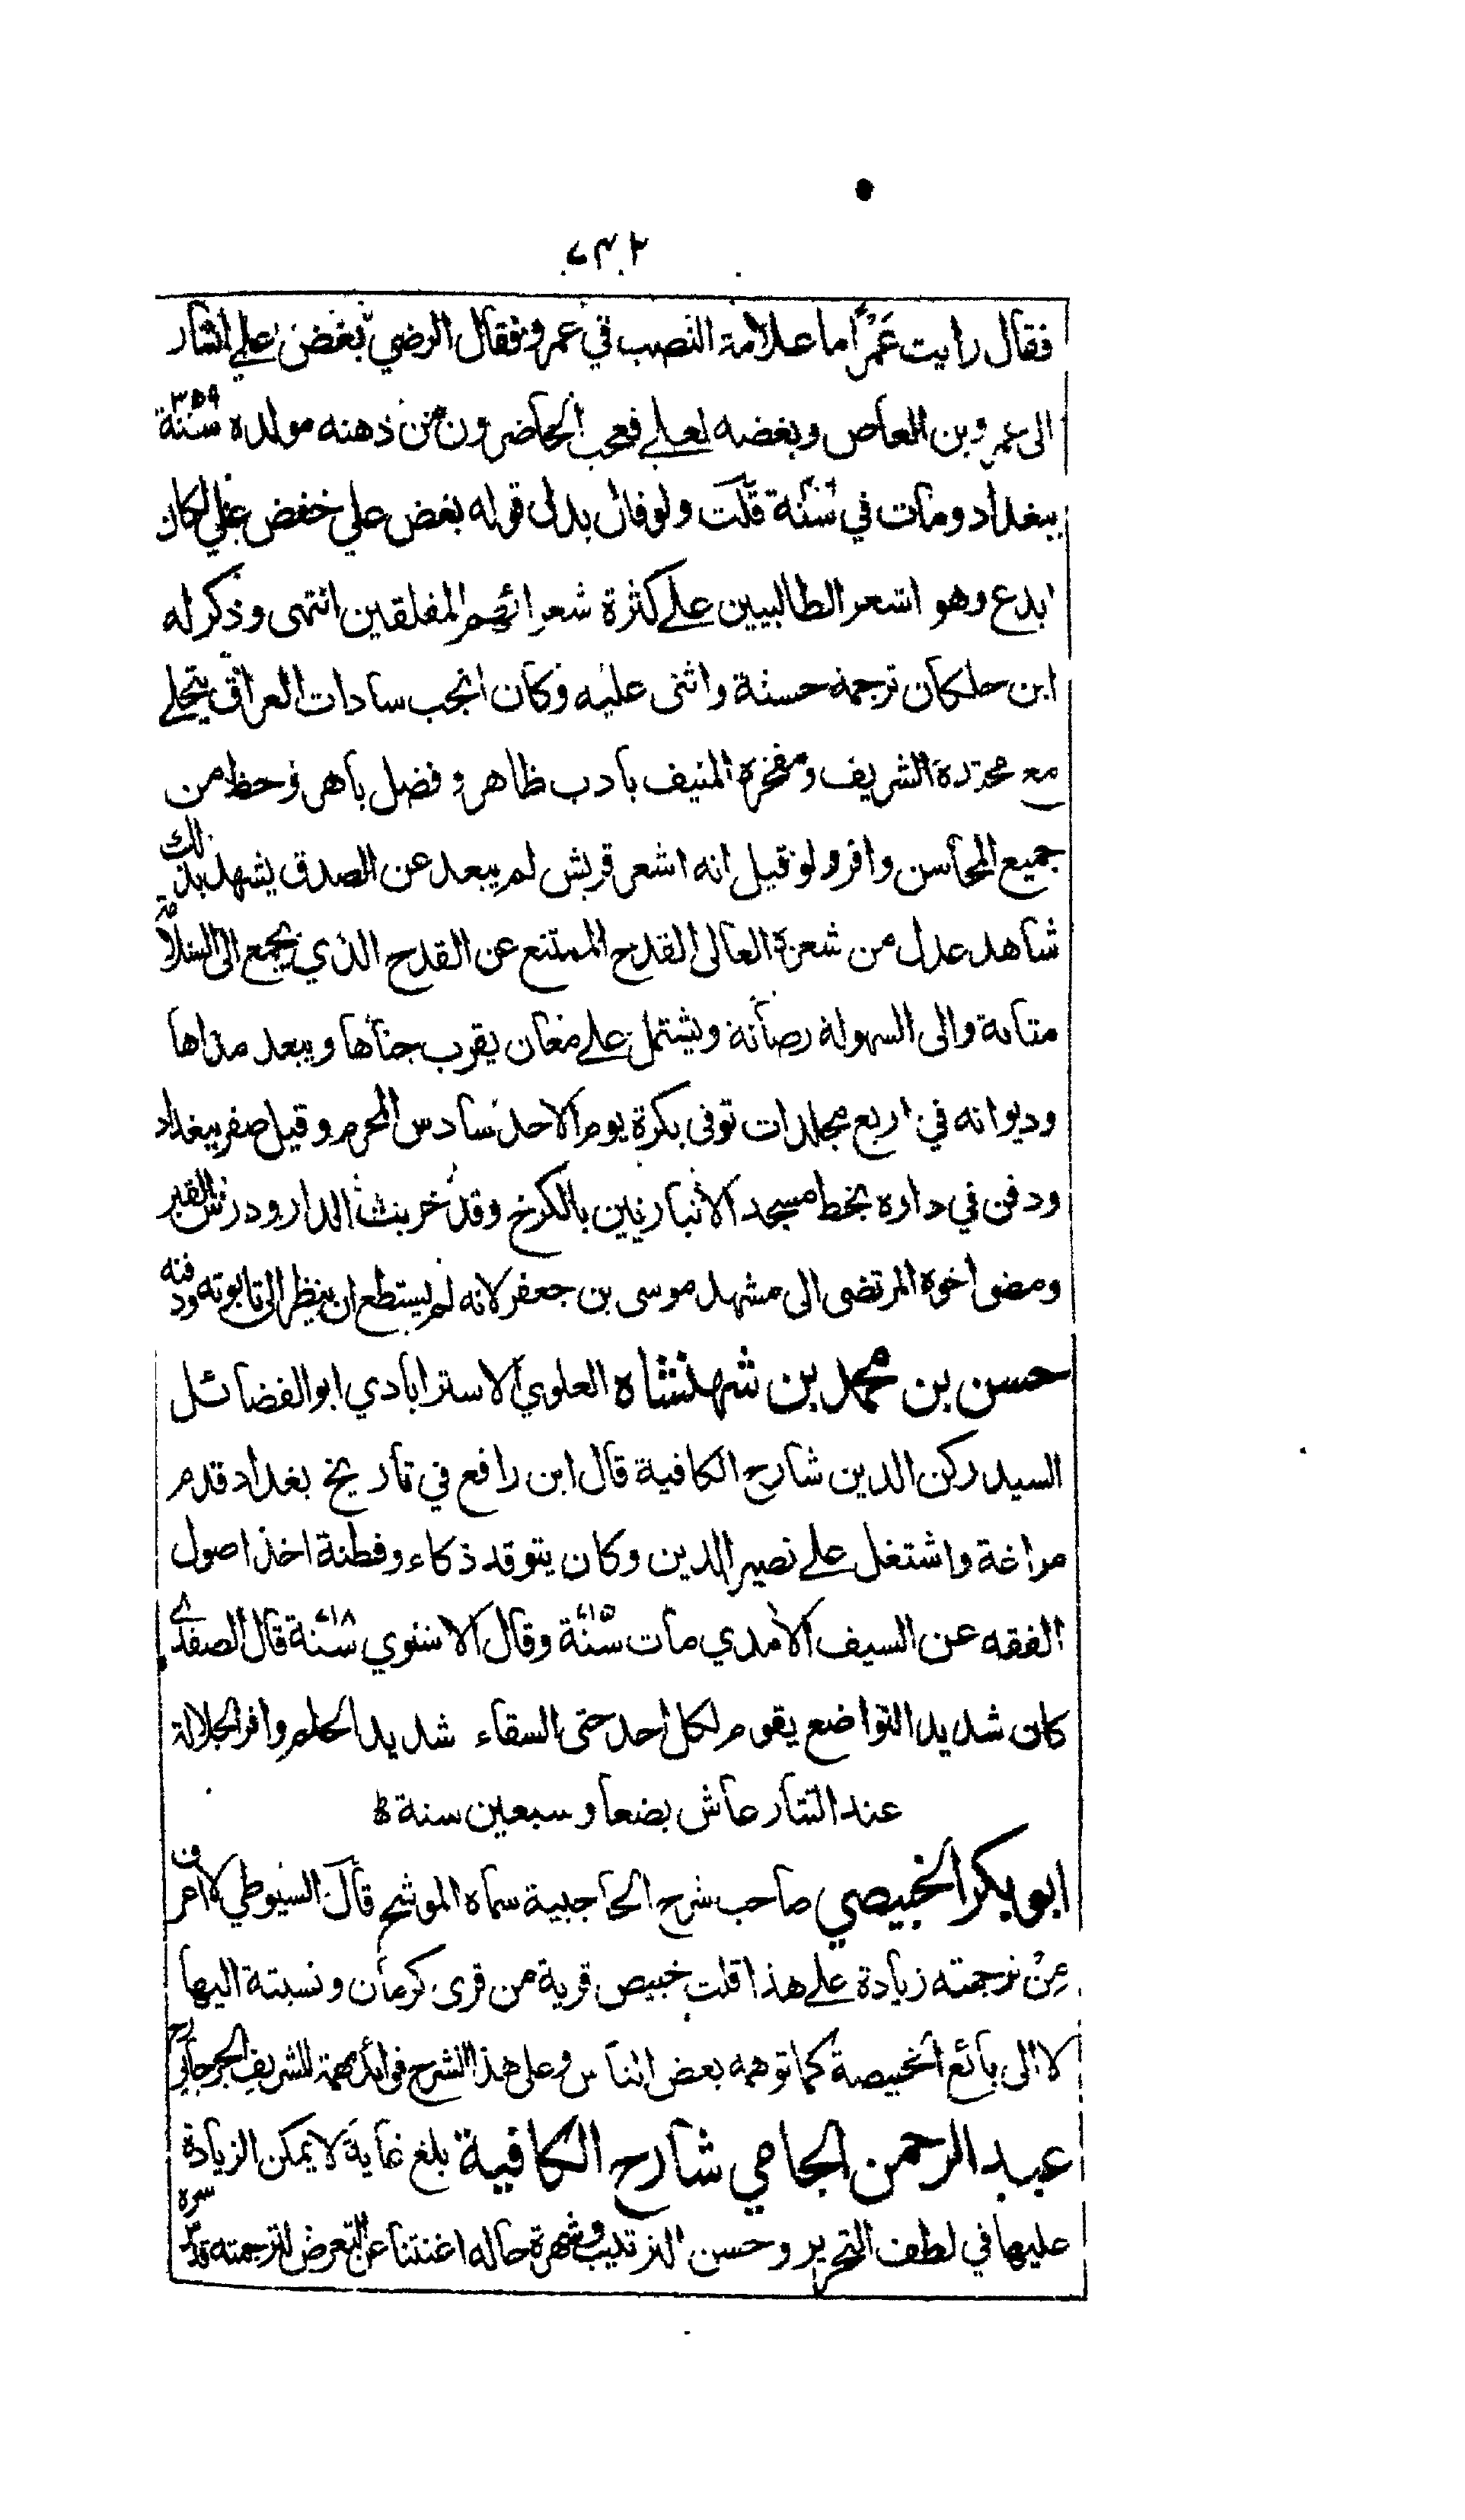 فقال رايت عمرا ما علامة النصب في عمرو فقال الرضي بغض علي اشار
الى عمرو بن العاص وبغضه لعلي فعجب الحاضرون من ذهنه مولده سنة ٣٥٩
ببغداد ومات في سنة قلت ولو قال بدل قوله بغض علي خفض علي لكان
ابدع وهو اشعر الطالبيين على كثرة شعرائهم المفلقين انتهى وذكر له
ابن خلكان ترجمة حسنة واثنى عليه وكان انجب سادات العراق يتحلى
مع محتده الشريف ومفخره المنيف بادب ظاهر وفضل باهر وحظ من
جميع المحاسن وافر ولو قيل انه اشعر قريش لم يبعد عن الصدق يشهد بذلك
شاهد عدل من شعره العالى القدح الممتنع عن القدح الذي يجمع الى السلاسة
متانة والى السهولة رصانة ويشتمل على معان يقرب جناها ويبعد مداها
وديوانه في اربع مجلدات توفى بكرة يوم الاحد سادس المحرم وقيل صفر ببغداد
ودفن في داره بخط مسجد الانباريين بالكرخ وقد خربت الدار ودرس القبر
ومضى اخوه المرتضى الى مشهد موسى بن جعفر لانه لم يستطع ان ينظر الى تابوته ودفنه
حسن بن محمد بن شهنشاه العلوي الاسترابادي ابو الفضائل
السيد ركن الدين شارح الكافية قال ابن رافع في تاريخ بغداد قدم
مراغة واشتغل على نصير الدين وكان يتوقد ذكاء وفطنة اخذ اصول
الفقه عن السيف الامدي مات سنة ٧١٥ وقال الاسنوي سنة ٧١٨ قال الصفدي
كان شديد التواضع يقوم لكل احد حتى السقاء شديد الحلم وافر الجلالة
عند التتار عاش بضعا وسبعين سنة
ابو بكر الخبيصي صاحب شرح الحاجبية سماه الموشح قال السيوطي لا اعرف
من ترجمته زيادة على هذا قلت خبيص قرية من قرى كرمان ونسبته اليها
لا الى بائع الخبيصة كما توهمه بعض الناس وعلى هذا الشرح فوائد مهمة للشريف الجرجاني
عبد الرحمن الجامي شارح الكافية بلغ غاية لا يمكن الزيادة
عليها في لطف التحرير وحسن الترتيب وشهرة حاله اغنتنا عن التعرض لترجمته قدس سره